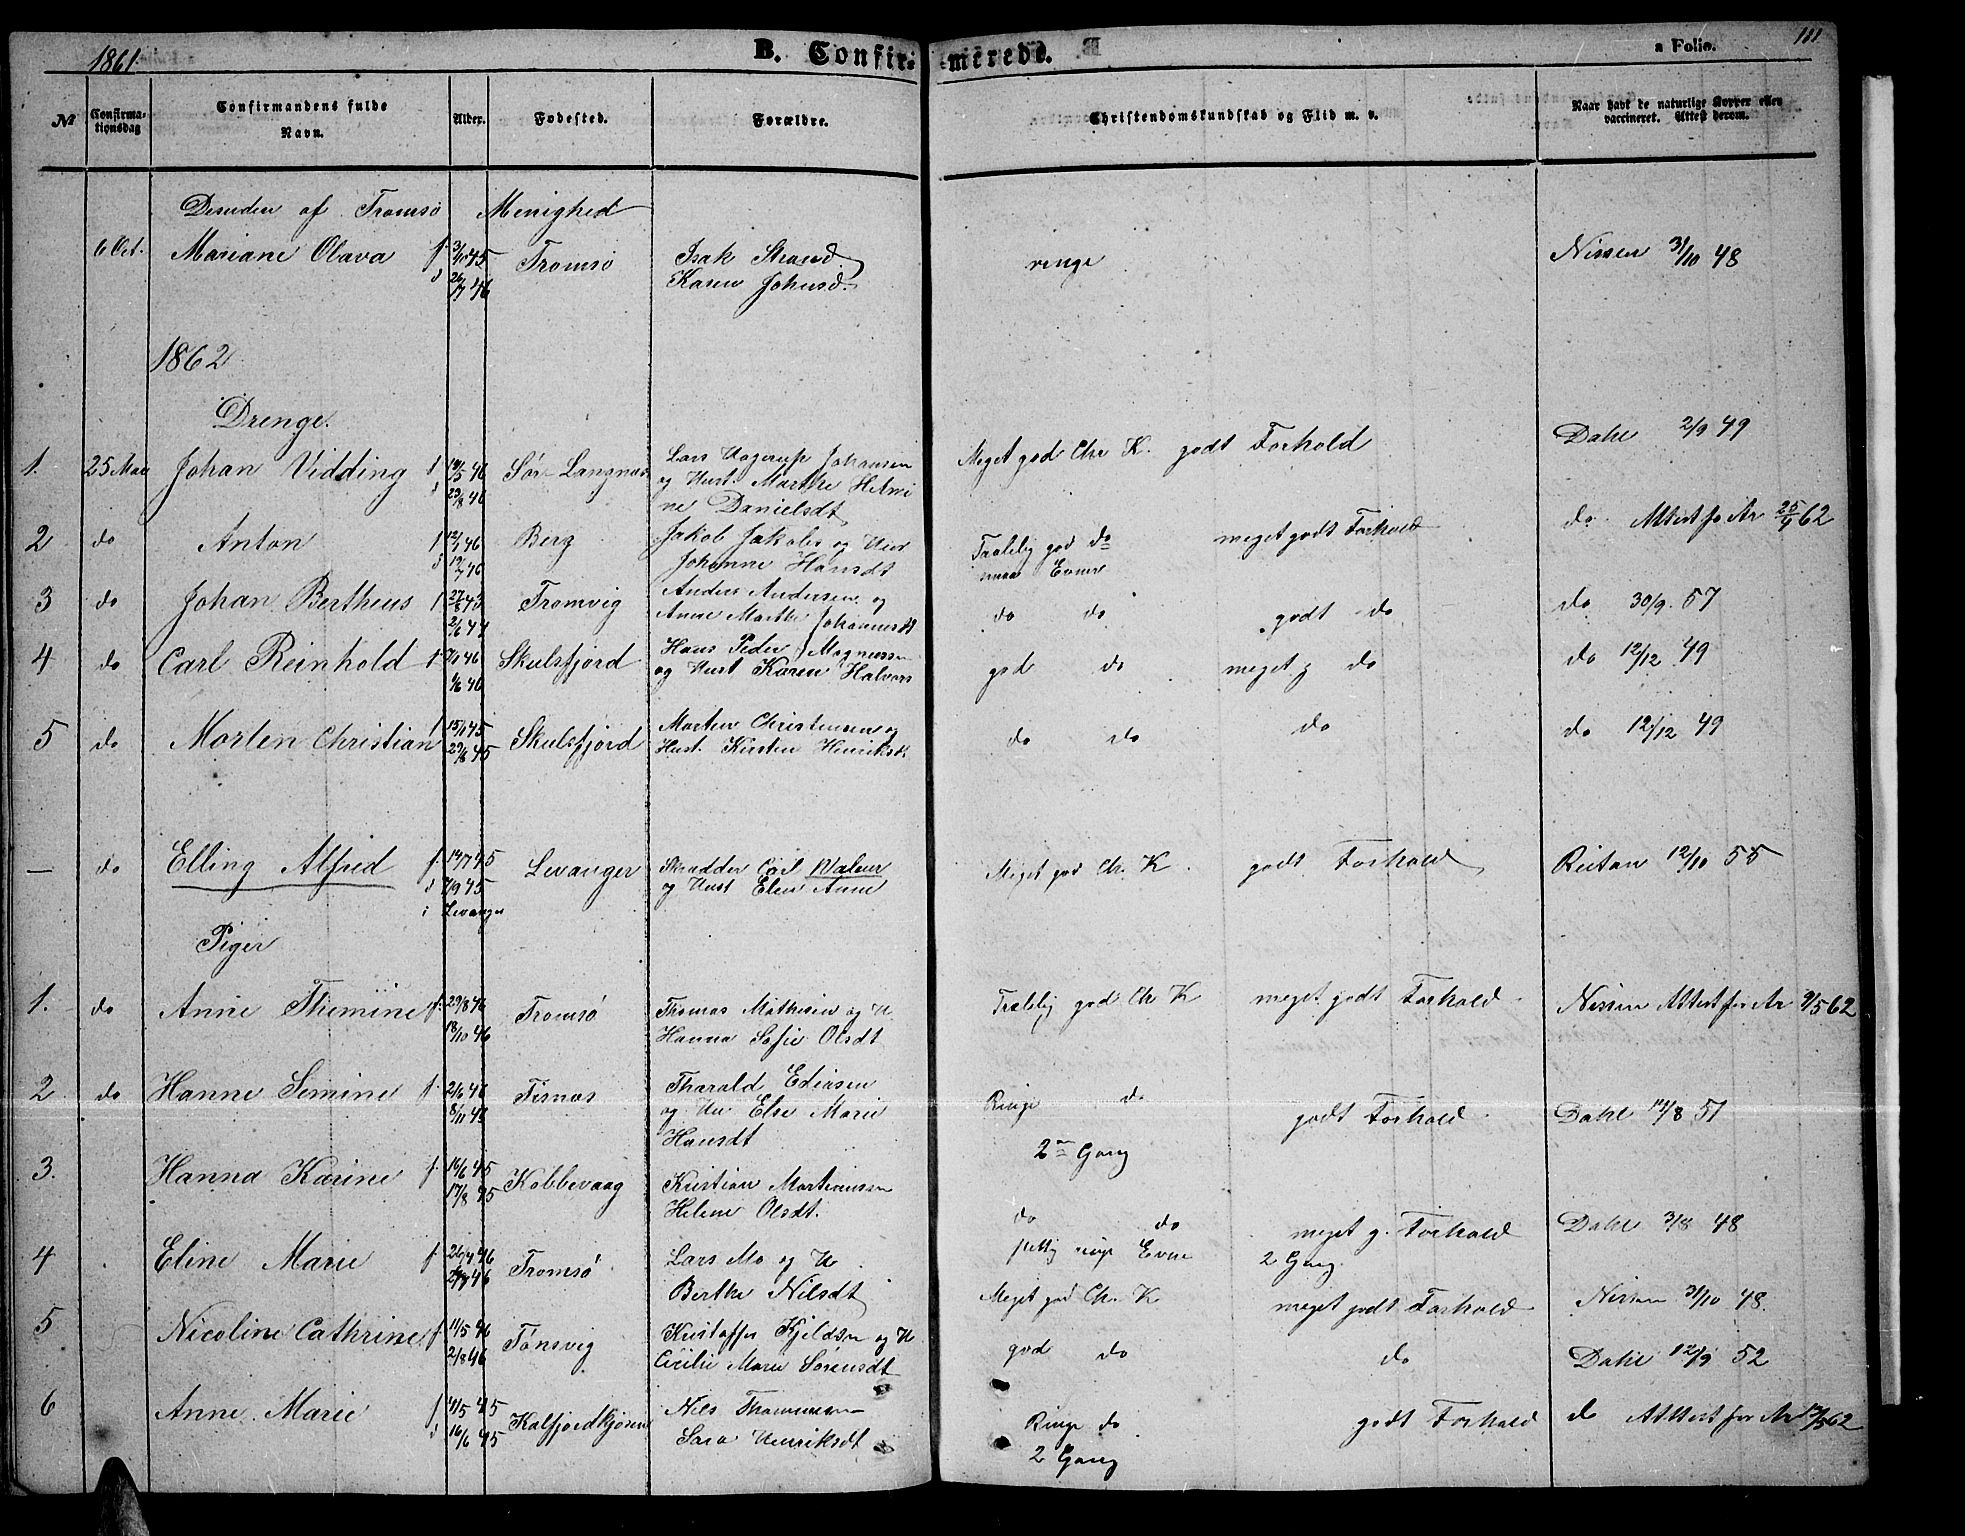 1861
B. Confir-
merede.
a Folio.
111
№
Confirma-
tionsdag
Confirmandens fulde
Navn.
Alder.
Fødested.
Forældre.
Christendomskundskab og Flid m. v.
Naar havt de naturlige Kopper eller
vaccineret. Attest derom.
Desuden af Tromsø Menighed
6 Oct. Mariane Olava f. 3/10 45 Tromsø Isak Strand ringe Nissen 31/10 48
d 26/7 46 Karen Johnsd.
1862
Drenge.
1. 25 Mai Johan Vidding f 19/5 46 Sør-Langnæs Lars Hagerup Johansen Meget god Chr K. godt Forhold Dahl 2/9 49
d 23/8 46 og Hust. Marthe Helmi
ne Danielsdt
2 do Anton f 12/1 46 Berg Jakob Jakobs og Hust Taalelig god do meget godt Forhold do Attest for Ar 25/4 62
d 19/7 46 Johanne Hansdt smaa Evner
3 do Johan Bertheus f 27/5 43 Tromvig Anders Andersen og do do godt do do 30/9 57
2/6 44 Anne Marthe Johannesdt
4 do Carl Reinhold f 46 Skulsfjord Hans Peder Magnussen god do meget g do do 12/12 49
1/6 46 og Hust Karen Halvors
5 do Morten Christian f 15/1 45 Skulsfjord Morten Christensen og do do do do 12/12 49
29/6 45 Hust. Kirsten Henriksdt
— do Elling Alfred f. 19/7 45 Levanger Skrædder Carl Valeur Meget god Ch. K godt Forhold Reitan 12/10 55
d 7/9 45 og Hust Elen Anne
i Levanger
Piger
1. do Anne Thomine f. 29/8 46 Tromsø Thomas Mathisen og H. Taalelig god Ch K meget godt Forhold Nissen Attest for Ar 9/5 62
18/10 46 Hanna Sofie Olsdt
2 do Hanne Semine f. 2/6 46 Tisnæs Tharald Ediasen Ringe do godt Forhold Dahl 14/8 51
8/11 46 og Hu Else Marie
Hansdt 2en Gang
3. Hanna Karine f. 16/6 45 Kobbevaag Kristian Martinussen do do meget g. Forhold Dahl 3/8 48
17/8 45 Helene Olsdt. ringe Evne 2 Gang
4 Eline Marie f 26/4 46 Tromsø Lars Mo og H Meget god Ch. K meget godt Forhold Nissen 31/10 48.
46 Berthe Nilsdt
5 Nicoline Cathrine f. 11/5 46 Tønsvig Kristoffer Kjeldsen og H god do do Dahl 12/9 52
2/8 46 Cicilie Marie Sørensdt
6 Anne Marie f 4/5 45 Kalfjordkjosen Nils Thommesen Ringe do godt Forhold do Attest for Ar 17/5 62
d 16/6 45 Sara Henriksdt 2 Gang